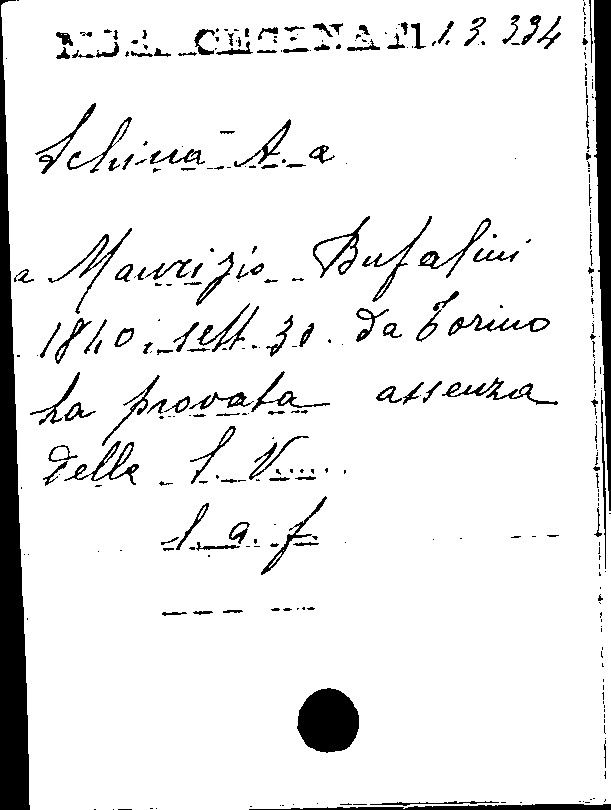 MSS. CESENATI 1.3.334
Schina A. a
a Maurizio Bufalini
1840, sett. 30. da Torino
La provata assenza
della S. V......
l. a. f.